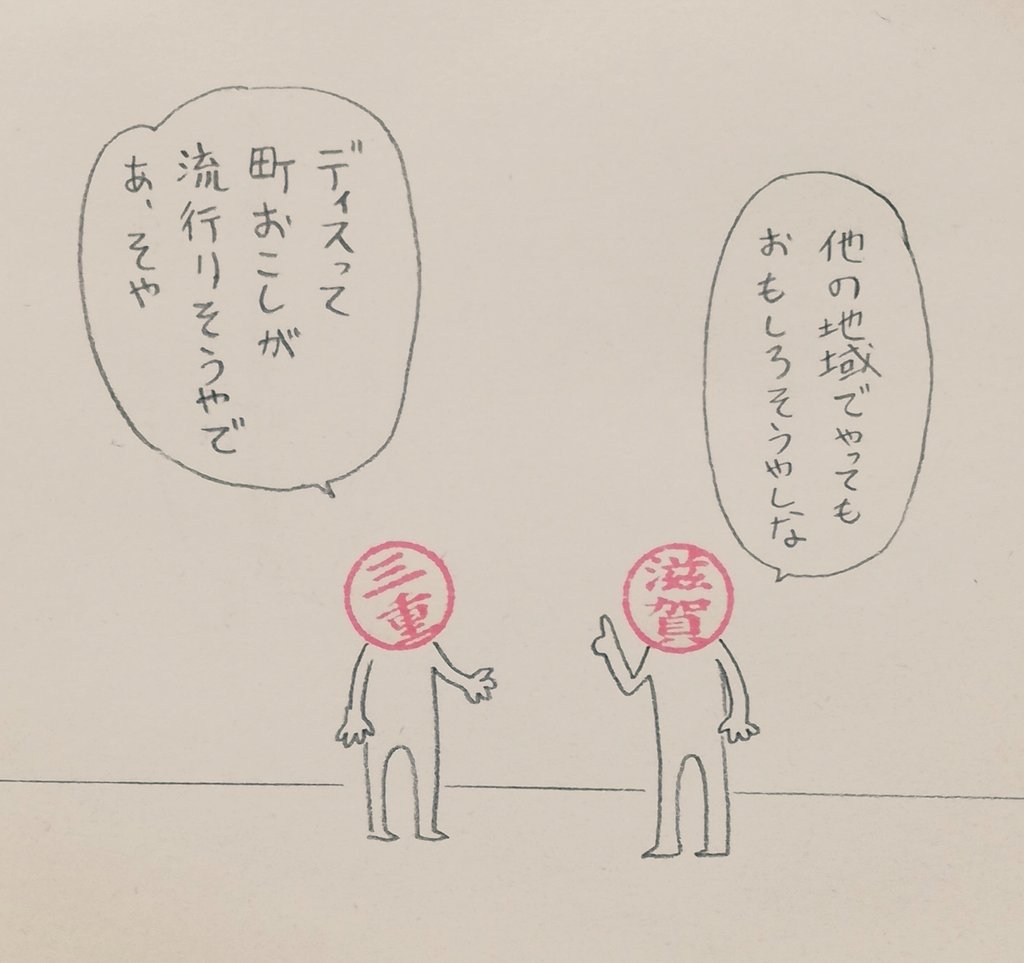 他の地域でやっても
おもしろそうやしな
ディスって
町おこしが
流行りそうやで
あ、そや
三重
滋賀